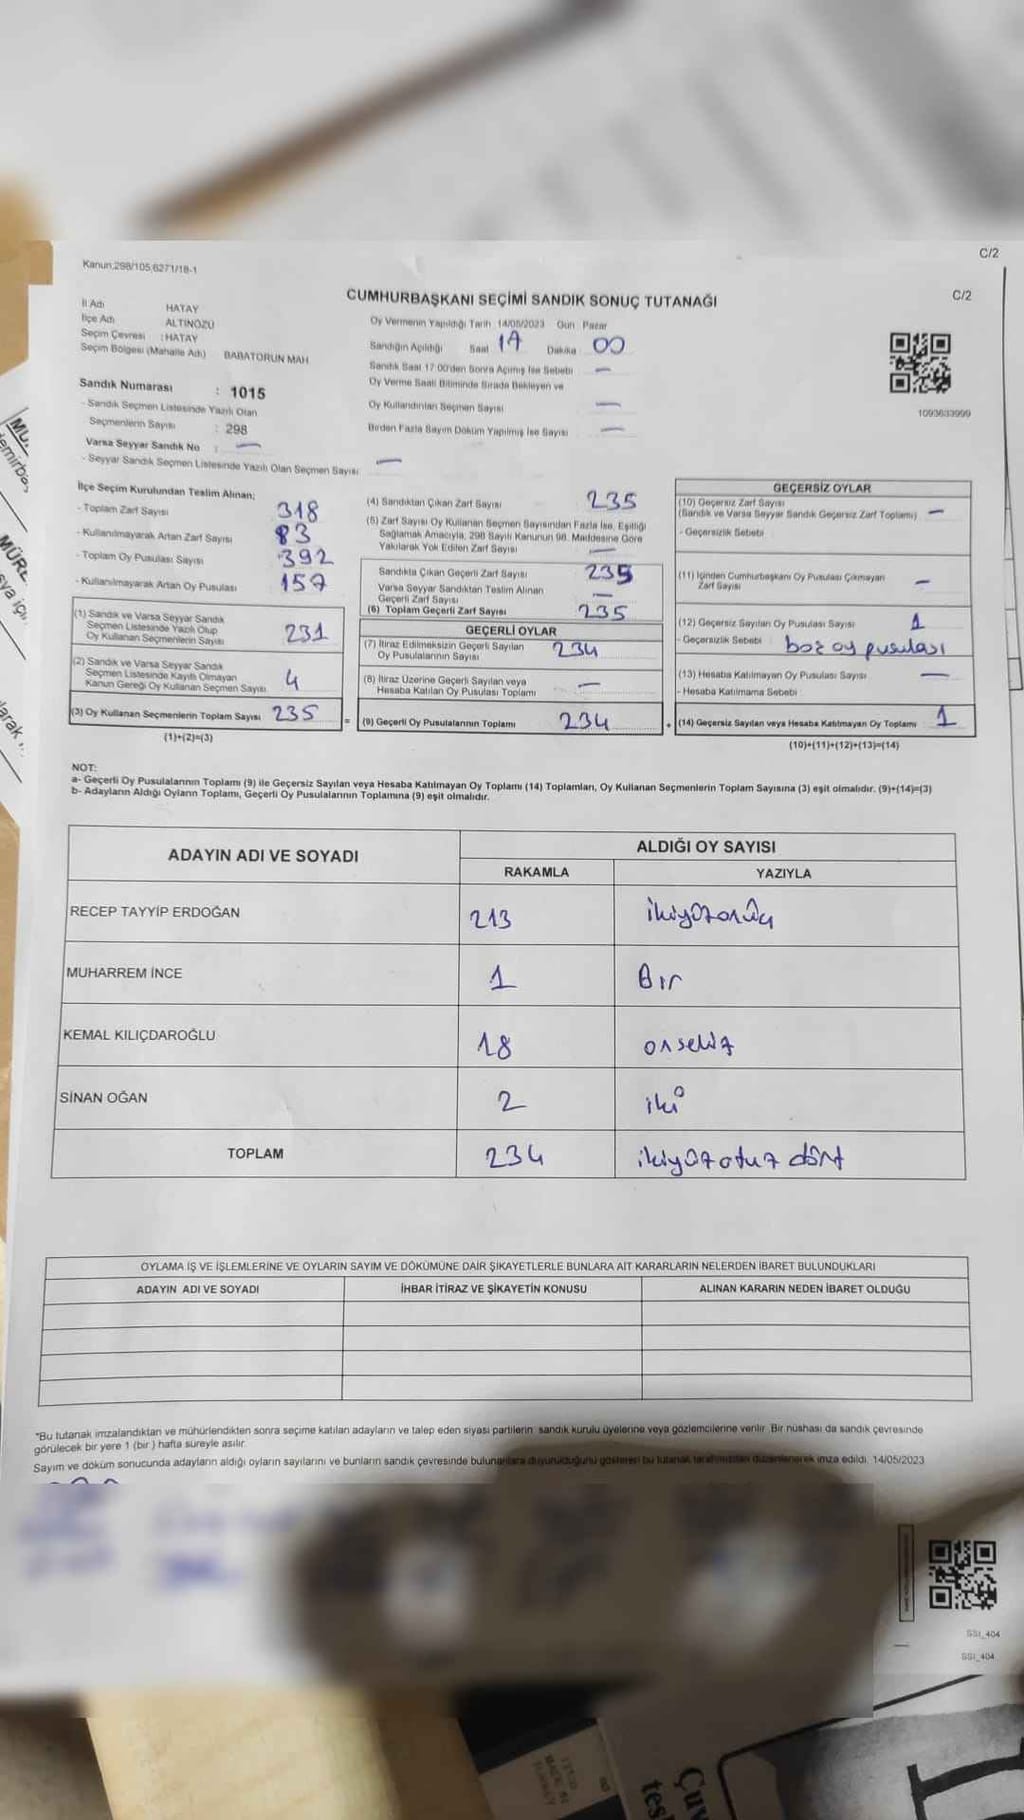 C/2
Kanun;298/105,6271/18-1
C/2
CUMHURBAŞKANI SEÇİMİ SANDIK SONUÇ TUTANAĞI
İl Adı HATAY
İlçe Adı ALTINÖZÜ
Seçim Çevresi :HATAY
Seçim Bölgesi (Mahalle Adı) BABATORUN MAH
Sandık Numarası : 1015
- Sandık Seçmen Listesinde Yazılı Olan
Seçmenlerin Sayısı : 298
Varsa Seyyar Sandık No : —
- Seyyar Sandık Seçmen Listesinde Yazılı Olan Seçmen Sayısı —
Oy Vermenin Yapıldığı Tarih 14/05/2023 Gün Pazar
Sandığın Açıldığı Saat 17 Dakika 00
Sandık Saat 17:00'den Sonra Açılmış İse Sebebi —
Oy Verme Saati Bitiminde Sırada Bekleyen ve
Oy Kullandırılan Seçmen Sayısı —
Birden Fazla Sayım Döküm Yapılmış İse Sayısı —
1093633999
İlçe Seçim Kurulundan Teslim Alınan;
- Toplam Zarf Sayısı 318
- Kullanılmayarak Artan Zarf Sayısı 83
- Toplam Oy Pusulası Sayısı 392
- Kullanılmayarak Artan Oy Pusulası 157
(1) Sandık ve Varsa Seyyar Sandık
Seçmen Listesinde Yazılı Olup
Oy Kullanan Seçmenlerin Sayısı 231
(2) Sandık ve Varsa Seyyar Sandık
Seçmen Listesinde Kayıtlı Olmayan
Kanun Gereği Oy Kullanan Seçmen Sayısı 4
(3) Oy Kullanan Seçmenlerin Toplam Sayısı 235
(1)+(2)=(3)
(4) Sandıktan Çıkan Zarf Sayısı 235
(5) Zarf Sayısı Oy Kullanan Seçmen Sayısından Fazla İse, Eşitliği
Sağlamak Amacıyla, 298 Sayılı Kanunun 98. Maddesine Göre
Yakılarak Yok Edilen Zarf Sayısı —
Sandıkta Çıkan Geçerli Zarf Sayısı 235
Varsa Seyyar Sandıktan Teslim Alınan
Geçerli Zarf Sayısı —
(6) Toplam Geçerli Zarf Sayısı 235
GEÇERLİ OYLAR
(7) İtiraz Edilmeksizin Geçerli Sayılan
Oy Pusulalarının Sayısı 234
(8) İtiraz Üzerine Geçerli Sayılan veya
Hesaba Katılan Oy Pusulası Toplamı —
= (9) Geçerli Oy Pusulalarının Toplamı 234
GEÇERSİZ OYLAR
(10) Geçersiz Zarf Sayısı
(Sandık ve Varsa Seyyar Sandık Geçersiz Zarf Toplamı) —
- Geçersizlik Sebebi
(11) İçinden Cumhurbaşkanı Oy Pusulası Çıkmayan
Zarf Sayısı —
(12) Geçersiz Sayılan Oy Pusulası Sayısı 1
- Geçersizlik Sebebi boz oy pusulası
(13) Hesaba Katılmayan Oy Pusulası Sayısı —
- Hesaba Katılmama Sebebi
+ (14) Geçersiz Sayılan veya Hesaba Katılmayan Oy Toplamı 1
(10)+(11)+(12)+(13)=(14)
NOT:
a- Geçerli Oy Pusulalarının Toplamı (9) ile Geçersiz Sayılan veya Hesaba Katılmayan Oy Toplamı (14) Toplamları, Oy Kullanan Seçmenlerin Toplam Sayısına (3) eşit olmalıdır. (9)+(14)=(3)
b- Adayların Aldığı Oyların Toplamı, Geçerli Oy Pusulalarının Toplamına (9) eşit olmalıdır.
ADAYIN ADI VE SOYADI ALDIĞI OY SAYISI
RAKAMLA YAZIYLA
RECEP TAYYİP ERDOĞAN 213 ikiyüzonüç
MUHARREM İNCE 1 Bir
KEMAL KILIÇDAROĞLU 18 onsekiz
SİNAN OĞAN 2 iki
TOPLAM 234 ikiyüzotuz dört
OYLAMA İŞ VE İŞLEMLERİNE VE OYLARIN SAYIM VE DÖKÜMÜNE DAİR ŞİKAYETLERLE BUNLARA AİT KARARLARIN NELERDEN İBARET BULUNDUKLARI
ADAYIN ADI VE SOYADI İHBAR İTİRAZ VE ŞİKAYETİN KONUSU ALINAN KARARIN NEDEN İBARET OLDUĞU
"Bu tutanak imzalandıktan ve mühürlendikten sonra seçime katılan adayların ve talep eden siyasi partilerin sandık kurulu üyelerine veya gözlemcilerine verilir. Bir nüshası da sandık çevresinde
görülecek bir yere 1 (bir ) hafta süreyle asılır.
Sayım ve döküm sonucunda adayların aldığı oyların sayılarını ve bunların sandık çevresinde bulunanlara duyurulduğunu gösteren bu tutanak tarafımızdan düzenlenerek imza edildi. 14/05/2023
SSI_404
SSI_404